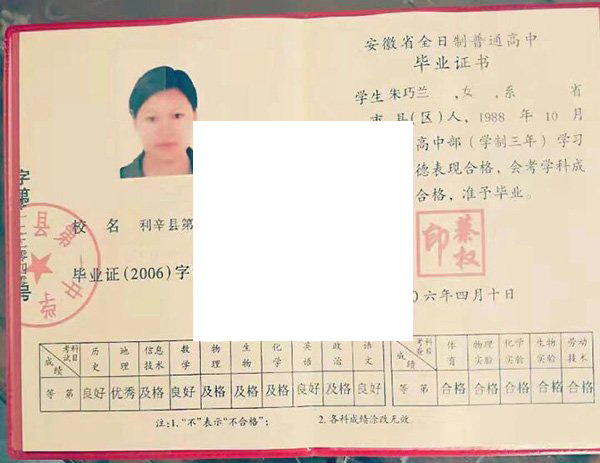 安徽省全日制普通高中
毕业证书
学生 朱巧兰 ,女 ,系 省
市 县(区)人, 1988 年 10 月
高中部(学制三年)学习
德表现合格, 会考学科成
合格, 准予毕业。
校 名 利辛县第
毕业证(2006)字
蔡权
印
〇六年四月十日
成绩 考试科目 历史 地理 信息技术 数学 物理 生物 化学 英语 政治 语文
等第 良好 优秀 及格 良好 及格 及格 及格 良好 及格 良好
成绩 考查科目 体育 物理实验 化学实验 生物实验 劳动技术
等第 合格 合格 合格 合格 合格
注:1. "不"表示"不合格"; 2. 各科成绩涂改无效。